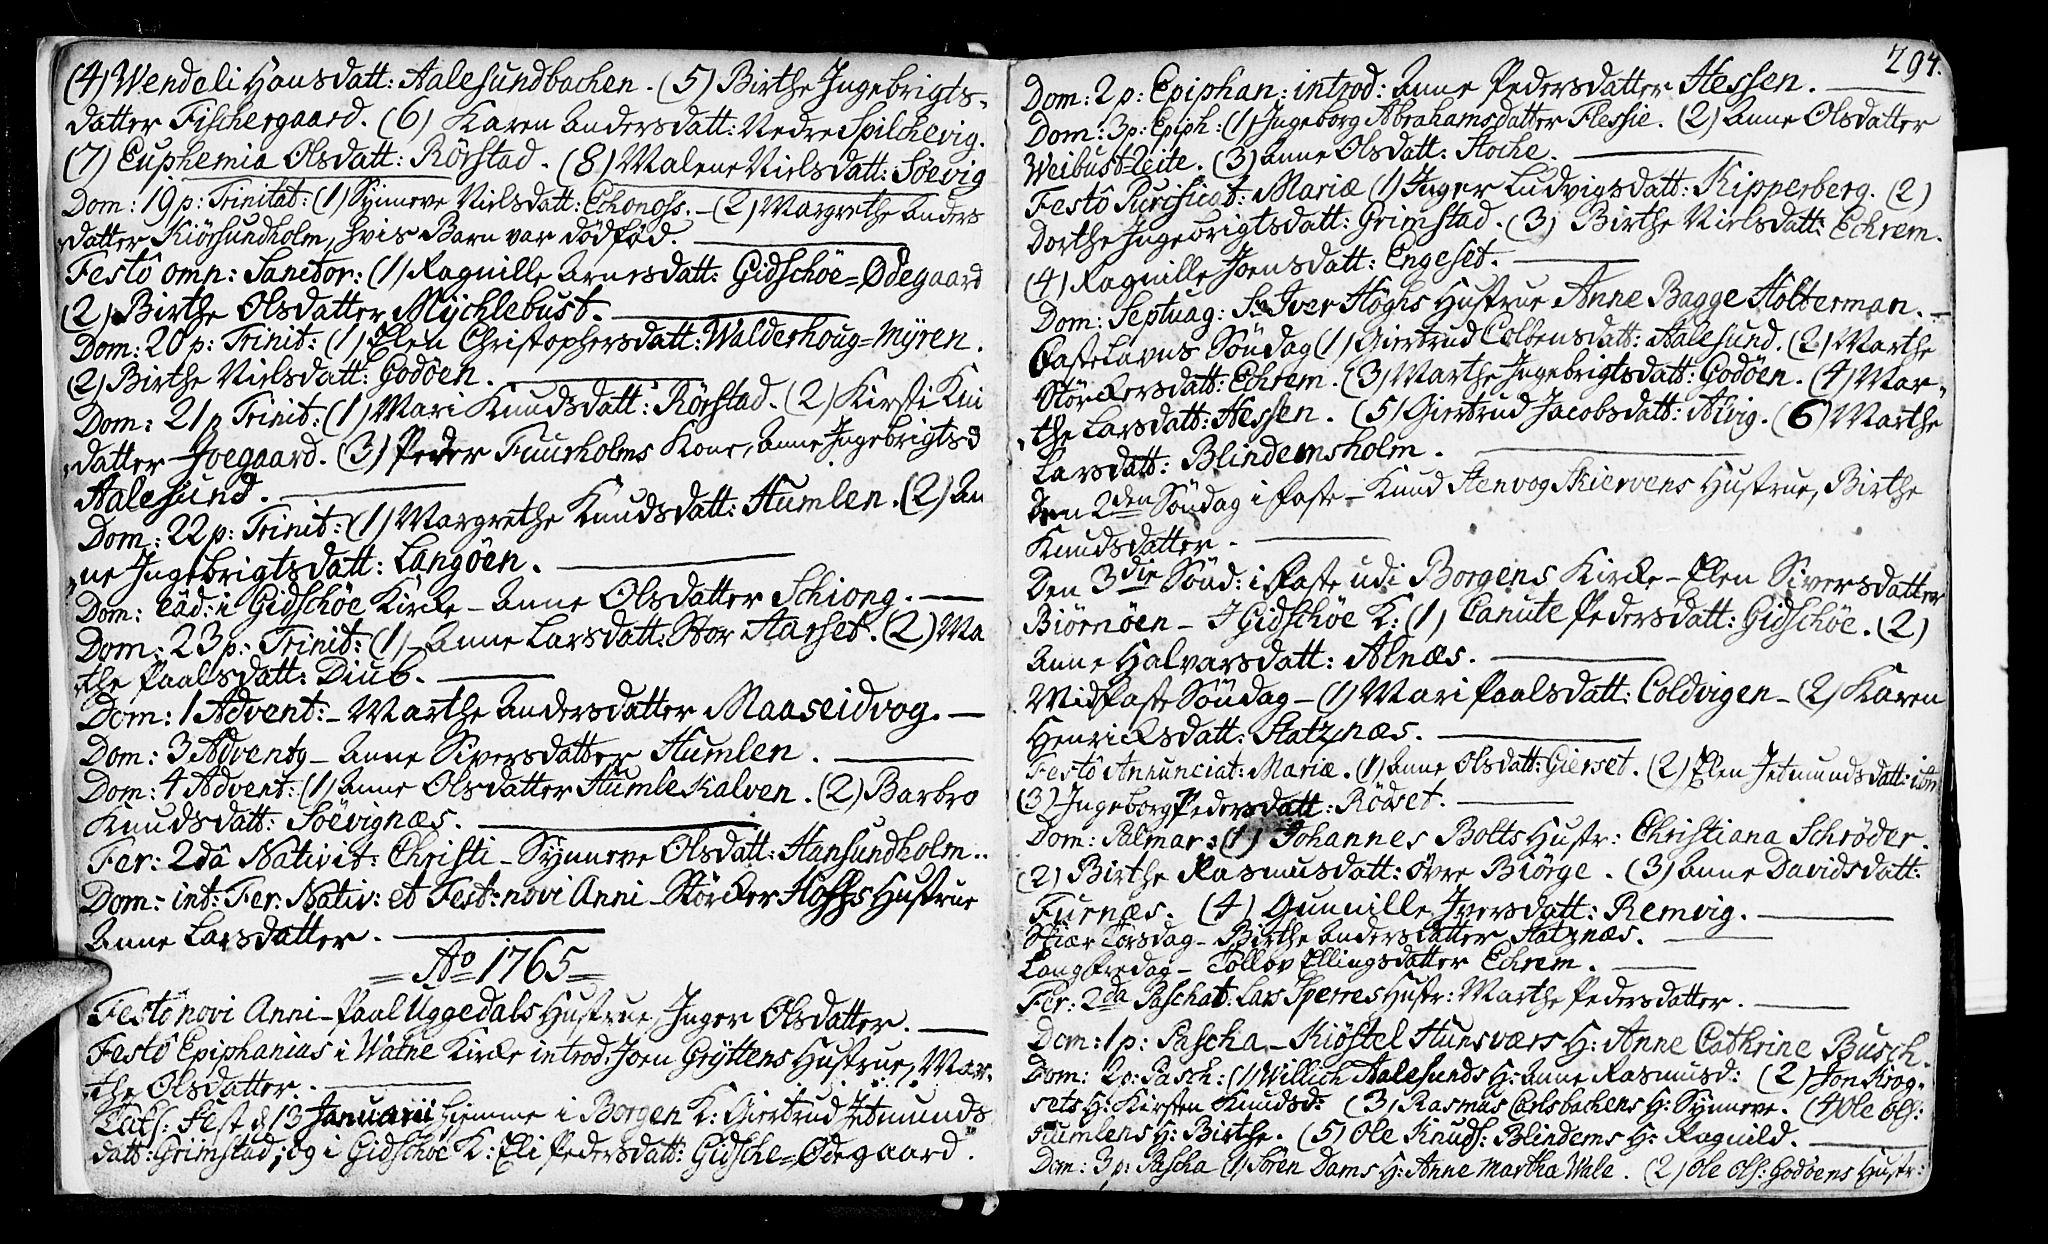 (4) Wendeli Hansdatt: Aalesundbachen. (5) Birthe Ingebrigts-
datter Fischergaard. (6) Karen Andersdatt: Nedre Spilchevig.
(7) Euphemia Olsdatt: Rörstad. (8) Malene Nielsdatt: Söevig
Dom: 19 p: Trinitat: (1) Synneve Nielsdatt: Echonoss. - (2) Margrethe Anders
datter Kiörsundholm, hvis Barn var dödföd.
Festô omn: Sanctor: (1) Ragnille Arnesdatt: Gidschöe=Ødegaard
(2) Birthe Olsdatter Mychlebust.
Dom: 20 p: Trinit: (1) Elen Christophersdatt: Walderhoug=Myren.
(2) Birthe Nielsdatt: Godöen.
Dom: 21 p Trinit: (1) Mari Knudsdatt: Rörstad. (2) Kirsti Knu
datter Joegaard. (3) Peder Fuurholms Kone, Anne Ingebrigtsd
Aalesund.
Dom: 22 p: Trinit: (1) Margrethe Knudsdatt: Humlen. (2) An
ne Ingebrigtsdatt: Langöen.
Dom: eâd: i Gidschöe Kirke - Anne Olsdatter Schiong.
Dom: 23 p: Trinit: (1) Anne Larsdatt: Stor Aarset. (2) Ma
the Paalsdatt: Diub.
Dom: 1 Advent: - Marthe Andersdatter Maaseidvog.
Dom: 3 Adventq - Anne Siversdatter Humlen.
Dom: 4 Advent: (1) Anne Olsdatter HumleKalven. (2) Barbro
Knudsdatt: Söevignæs.
Fer: 2dâ Nativit: Christi - Synneve Olsdatt: Hansundholm..
Dom: int: Fer: Nativ: et Fest: novi Anni - Störcker Hoffs Hustrue
Anne Larsdatter.
= Ao 1765 =
Festô novi Anni - Paal Uggedals Hustrue, Inger Olsdatter.
Festô Epiphanias i Watne Kirke introd: Joen Gryttens Hustrue, Mar-
the Olsdatter.
Fest d 13 Januarii hiemme i Borgen K: Giertrud Jetmunds
datt: Grimstad; og i Gidschöe K: Eli Pedersdatt: Gidsche=Ødegaard.
294.
Dom: 2 p: Epiphan: introd: Anne Pedersdatter Hessen.
Dom: 3 p: Epiph: (1) Ingeborg Abrahamsdatter Flessie. (2) Anne Olsdatter
Weibust=Leite. (3) Anne Olsdatt: Hoche.
Festô Purificat: Mariæ (1) Inger Ludvigsdatt: Kipperberg. (2)
Dorthe Ingebrigtsdatt: Grimstad. (3) Birthe Nielsdatt: Echrem.
(4) Ragnille Joensdatt: Engeset.
Dom: Septuag: Sr Iver Höghs Hustrue Anne Bagge Holterman.
Fastelavns Söndag (1) Giertrud Colbensdatt: Aalesund. (2) Marthe
Störckersdatt: Echrem. (3) Marthe Ingebrigtsdatt: Godöen. (4) Mar-
the Larsdatt: Hessen. (5) Giertrud Jacobsdatt: Alvig. (6) Marthe
Larsdatt: Blindemsholm.
Den 2den Söndag i Faste - Knud Skiervens Hustrue, Birthe
Knudsdatter.
Den 3die Sönd: i Faste udi Borgens Kirke - Elen Siversdatter
Biörnöen - I Gidschöe K: (1) Canute Pedersdatt: Gidschöe. (2)
Anne Halvarsdatt: Alnæs.
Midfaste Söndag - (1) Mari Paalsdatt: Coldvigen - (2) Karen
Henricksdatt: Slatznæs.
Festô Annunciat: Mariæ. (1) Anne Olsdatt: Gierset. (2) Elen Jetmundsdatt: ibm
(3) Ingeborg Pedersdatt: Rödset.
Dom: Palmar: (1) Johannes Bolts Hustr: Christiana Schrøder.
(2) Birthe Rasmusdatt: övre Biörge. (3) Anne Davidsdatt:
Furnæs. (4) Gunnille Iversdatt: Remvig.
Skiær Torsdag - Birthe Andersdatter Slatznæs.
Langfredag - Tollov Ellingsdatter Echrem.
Fer: 2da Paschat: Lars Sperres Hustr: Marthe Pedersdatter.
Dom: 1 p: Pascha - Kiöstel Hunsværs H: Anne Cathrine Busch.
Dom: 2 p: Pasch: (1) Willich Aalesunds H: Anne Rasmusd: (2) Jon Krog-
sets H: Kirsten Knudsd: (3) Rasmus Carlsbachens H: Synneve. (4) Ole Ols:
Humlens H: Birthe. (5) Ole Knuds: Blindems H: Ragnild.
Dom: 3 p: Pascha (1) Sören Dams H: Anne Martha Wale. (2) Ole Ols: Godöens Hustr: